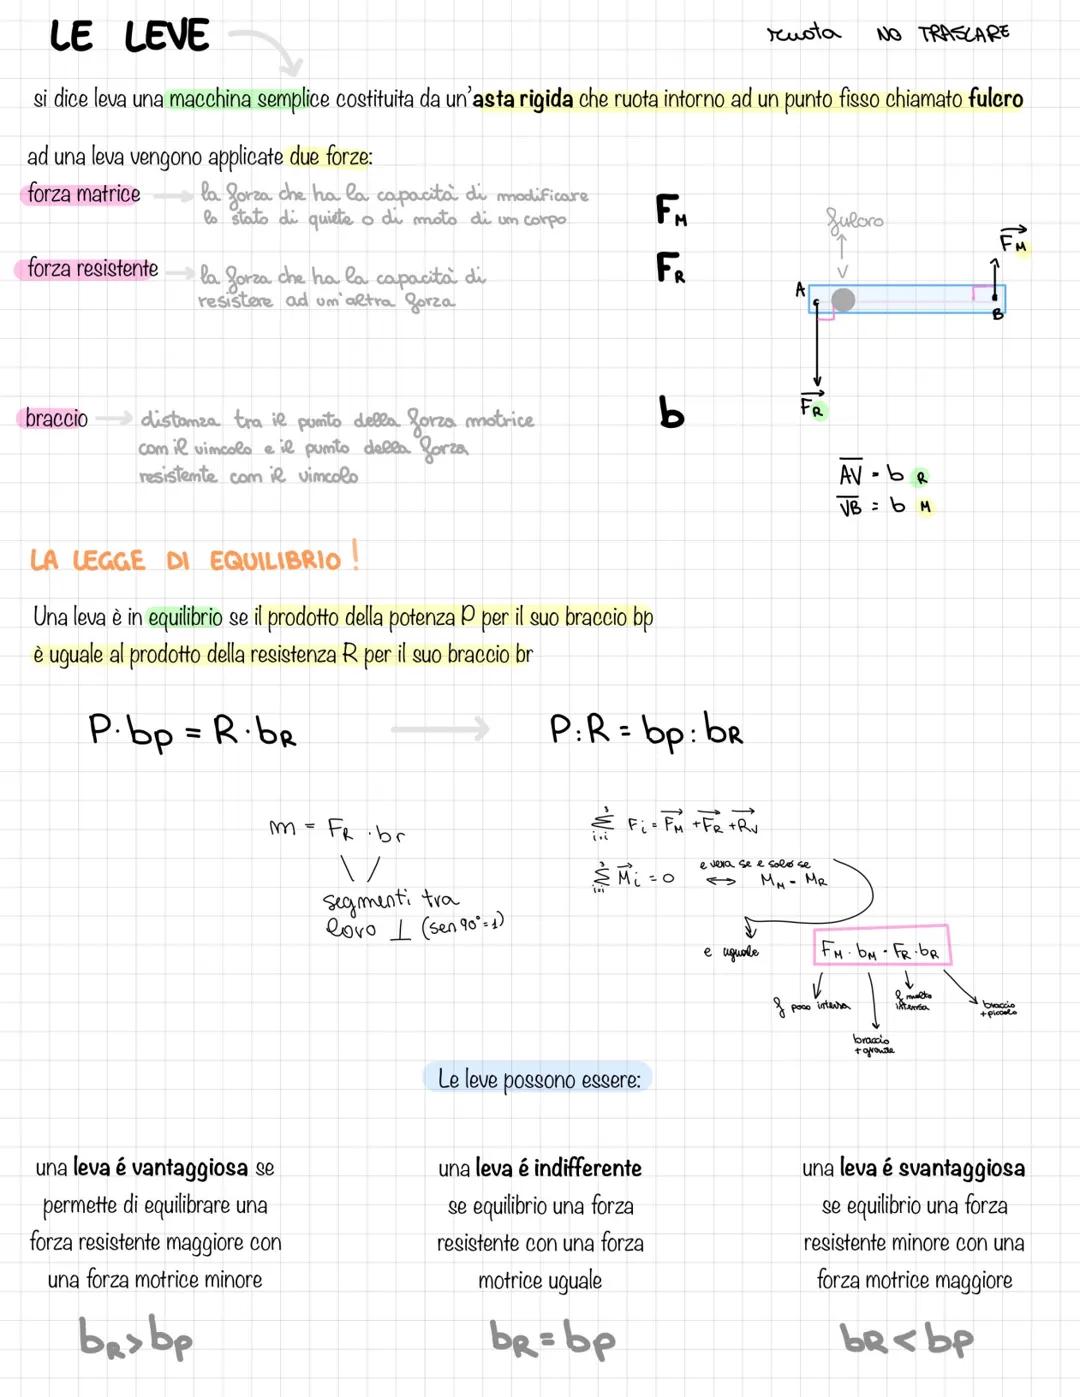 LE LEVE
ruota NO TRASLARE
si dice leva una macchina semplice costituita da un'asta rigida che ruota intorno ad un punto fisso chiamato fulcro
ad una leva vengono applicate due forze:
forza matrice
la forza che ha la capacità di modificare
lo stato di quiete o di moto di un corpo
FM
forza resistente
la forza che ha la capacità di
resistere ad un'altra forza
FR
fulcro
V
A
B
FM
FR
braccio
distanza tra il punto della forza motrice
con il vincolo e il punto della forza
resistente con il vincolo
b
AV = b R
VB = b M
LA LEGGE DI EQUILIBRIO!
Una leva è in equilibrio se il prodotto della potenza P per il suo braccio bp
è uguale al prodotto della resistenza R per il suo braccio br
P·bp = R·bR
P:R = bp:bR
m = FR · br
segmenti tra
loro ⊥ (sen 90°=1)
Σ Fi = FM + FR + RV
Σ Mi = 0
e vera se e solo se
⟷ MM = MR
e uguale
FM · bM = FR · bR
f poco intensa
braccio
+ grande
f molto
intensa
braccio
+ piccolo
Le leve possono essere:
una leva é vantaggiosa se
permette di equilibrare una
forza resistente maggiore con
una forza motrice minore
bR > bp
una leva é indifferente
se equilibrio una forza
resistente con una forza
motrice uguale
bR = bp
una leva é svantaggiosa
se equilibrio una forza
resistente minore con una
forza motrice maggiore
bR < bp